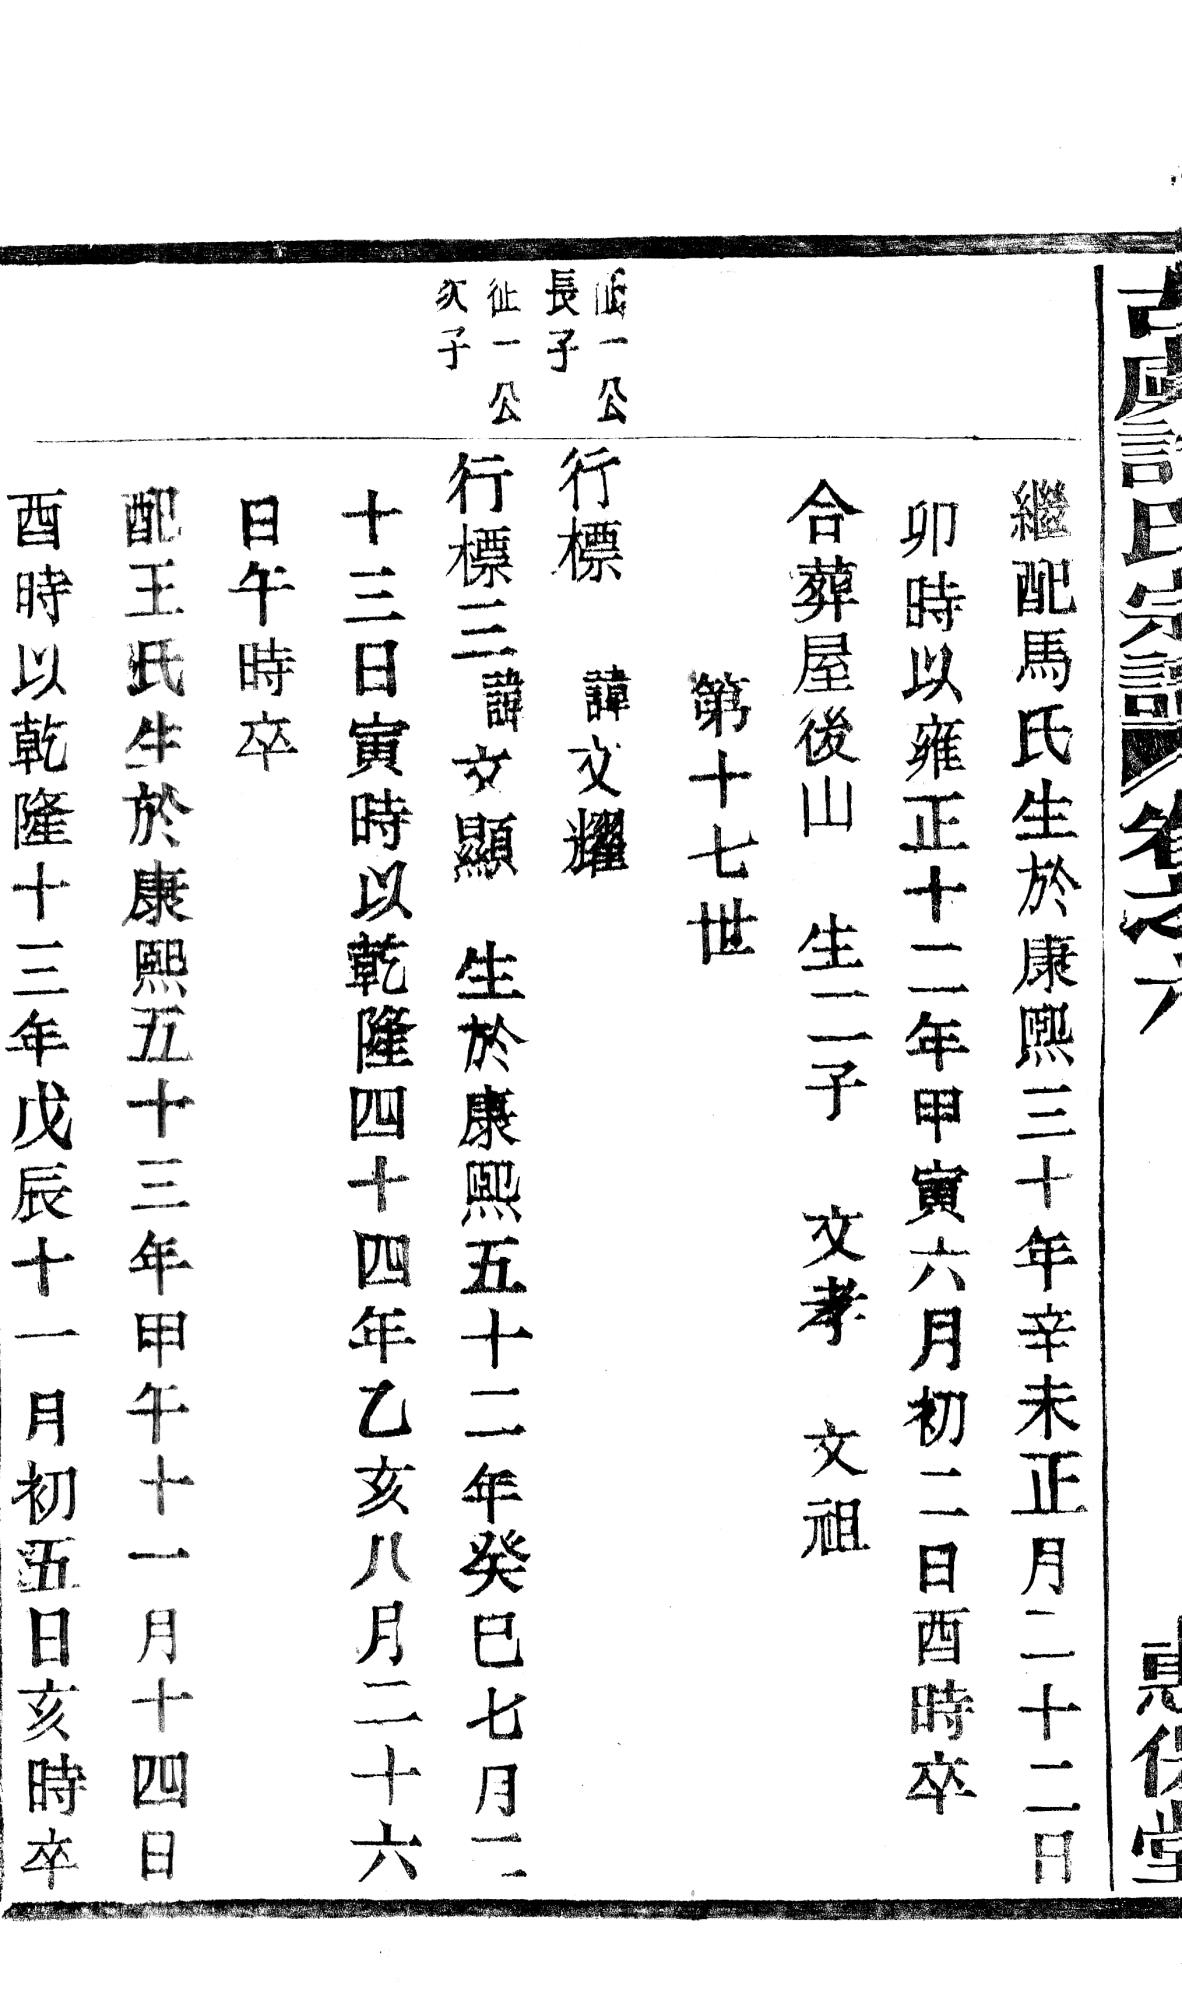 古虞許氏宗譜 卷之六 惠保堂
繼配馬氏生於康熙三十年辛未正月二十二日
卯時以雍正十二年甲寅六月初二日酉時卒
合葬屋後山 生二子 文孝 文祖
第十七世
祉一公
長子
行標 諱文耀
祉一公
次子
行標三 諱文顯 生於康熙五十二年癸巳七月二
十三日寅時以乾隆四十四年乙亥八月二十六
日午時卒
配王氏生於康熙五十三年甲午十一月十四日
酉時以乾隆十三年戊辰十一月初五日亥時卒